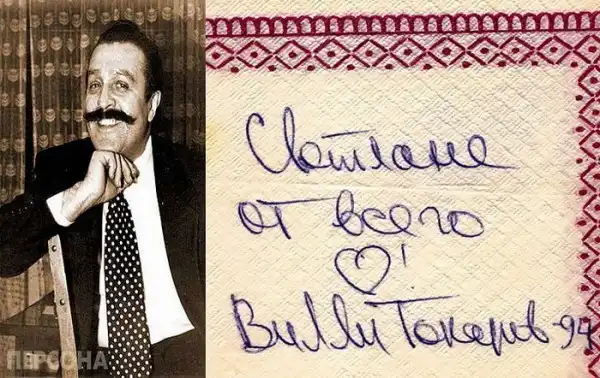 Светлане
от всего
♡!
Вилли Токарев-94
ПЕРСОНА